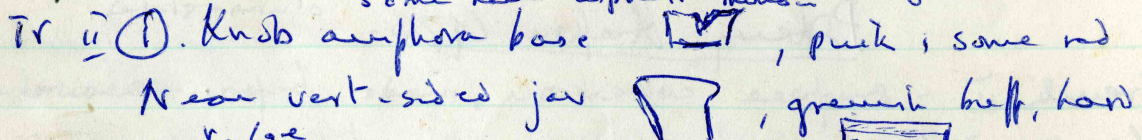 Tr ii ①. Knob amphora base , pink, some red
Near vert-sided jar , greenish buff, hard